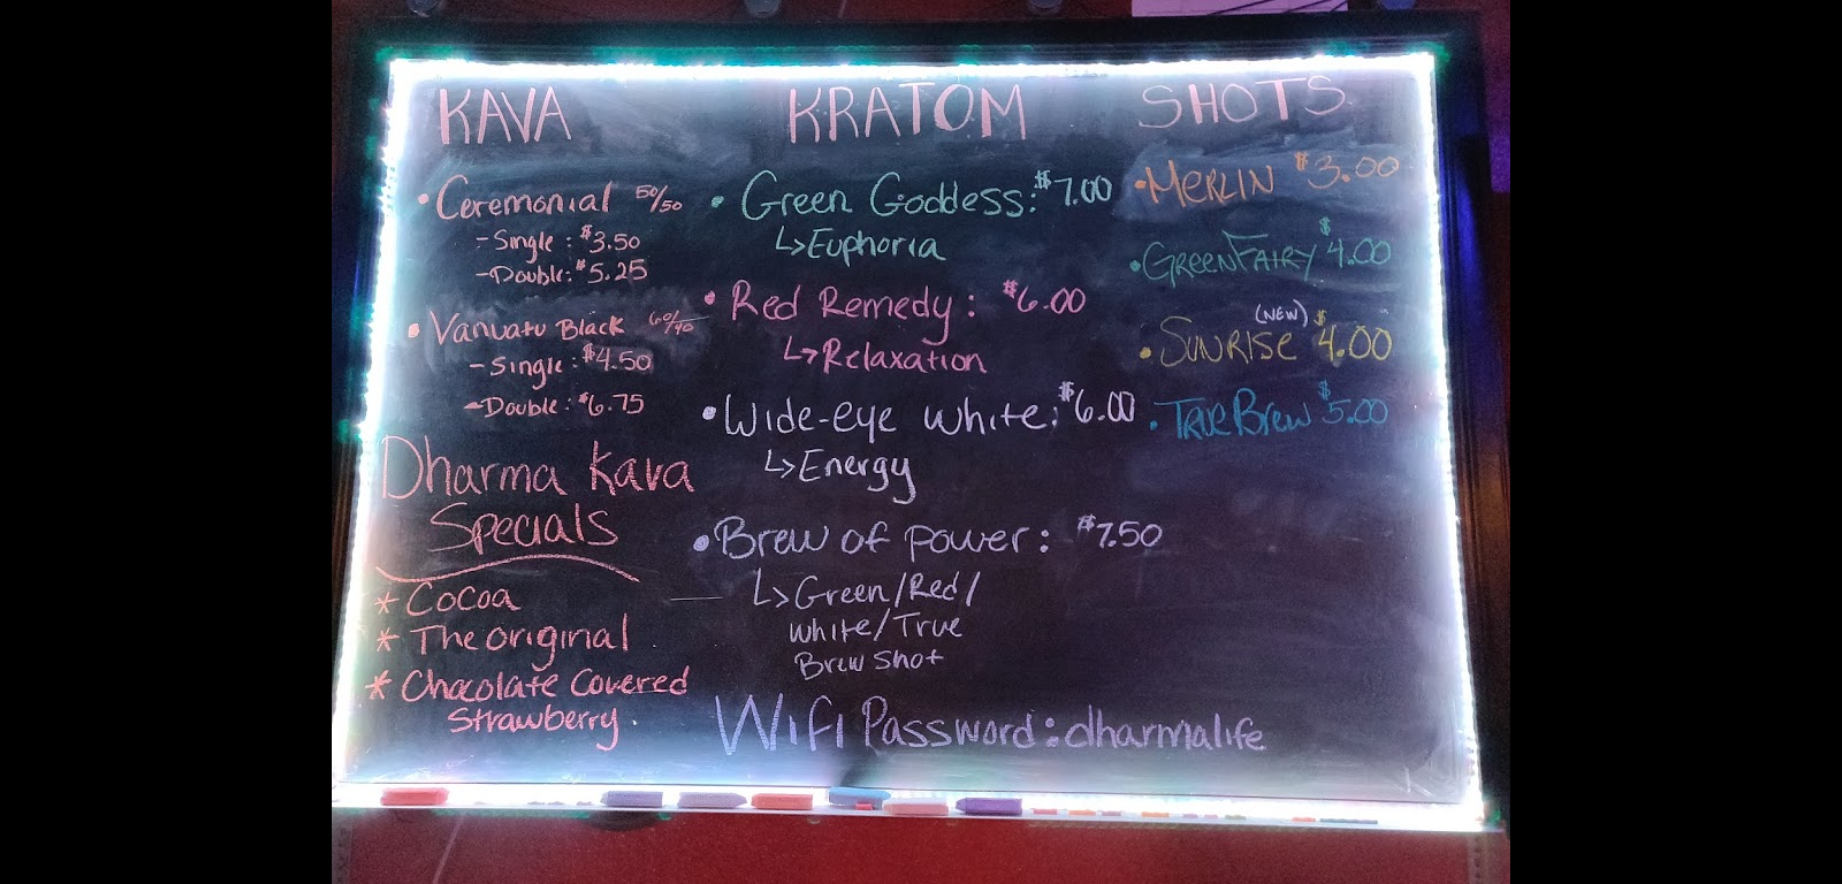 KAVA
• Ceremonial 50/50
- Single: $3.50
- Double: $5.25
• Vanuatu Black 60/40
- Single: $4.50
- Double: $6.75
Dharma Kava
Specials
* Cocoa
* The original
* Chocolate Covered
Strawberry
KRATOM
• Green Goddess: $7.00
↳ Euphoria
• Red Remedy: $6.00
↳ Relaxation
• Wide-eye white: $6.00
↳ Energy
• Brew of power: $7.50
↳ Green/Red/
white/True
Brew shot
SHOTS
• MERLIN $3.00
• GREENFAIRY $4.00
(NEW)
• SUNRISE $4.00
• TRUE BREW $5.00
WiFi Password: dharmalife